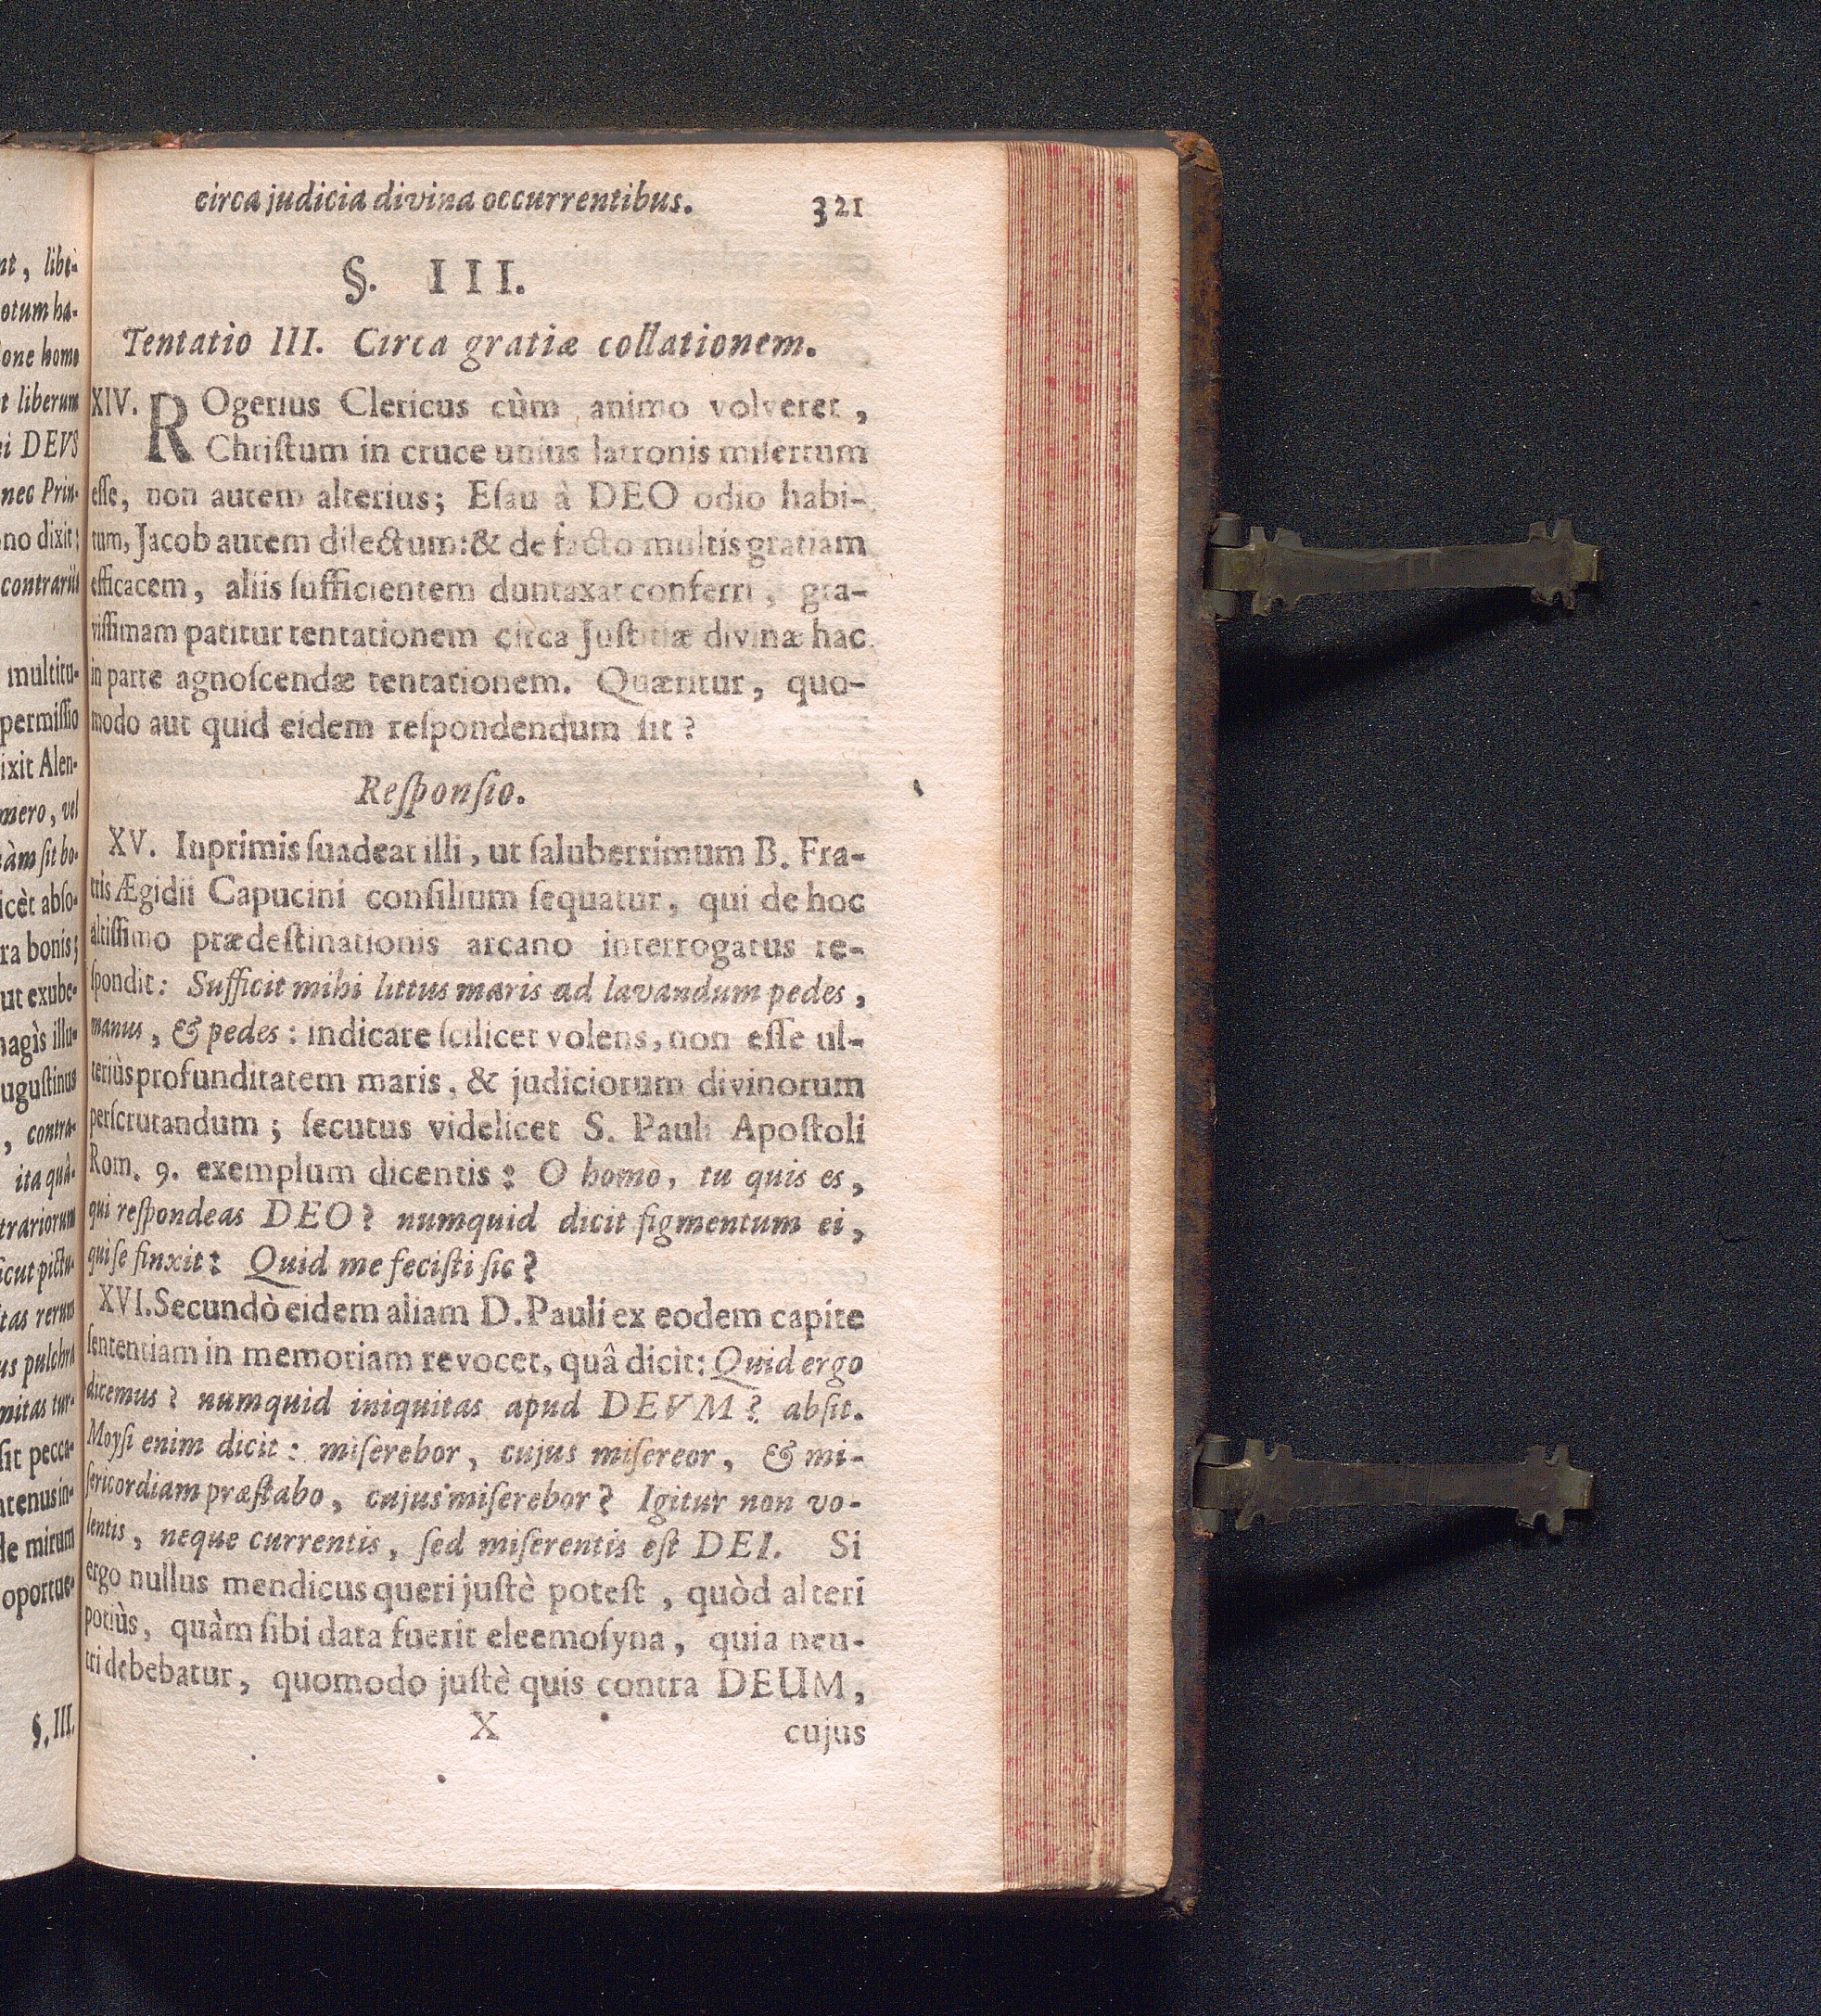 circa judicia divina occurrentibus. 321
§. III.
Tentatio III. Circa gratiæ collationem.
XIV. ROgerius Clericus cùm animo volveret,
Chriſtum in cruce unius latronis miſertum
eſſe, non autem alterius; Eſau à DEO odio habi-
tum, Jacob autem dilectum: & de facto multis gratiam
efficacem, aliis ſufficientem duntaxat conferri, gra-
viſſimam patitur tentationem circa Juſtitiæ divinæ hac
in parte agnoſcendæ tentationem. Quæritur, quo-
modo aut quid eidem reſpondendum ſit?
Reſponſio.
XV. Inprimis ſuadeat illi, ut ſaluberrimum B. Fra-
tris Ægidii Capucini conſilium ſequatur, qui de hoc
altiſſimo prædeſtinationis arcano interrogatus re-
ſpondit: Sufficit mihi littus maris ad lavandum pedes,
manus, & pedes: indicare ſcilicet volens, non eſſe ul-
teriùs profunditatem maris, & judiciorum divinorum
perſcrutandum; ſecutus videlicet S. Pauli Apoſtoli
Rom. 9. exemplum dicentis: O homo, tu quis es,
qui reſpondeas DEO? numquid dicit figmentum ei,
qui ſe finxit: Quid me feciſti ſic?
XVI. Secundò eidem aliam D. Pauli ex eodem capite
ſententiam in memoriam revocet, quâ dicit: Quid ergo
dicemus? numquid iniquitas apud DEVM? abſit.
Moyſi enim dicit: miſerebor, cujus miſereor, & mi-
ſericordiam præſtabo, cujus miſerebor? Igitur non vo-
lentis, neque currentis, ſed miſerentis eſt DEI. Si
ergo nullus mendicus queri juſtè poteſt, quòd alteri
potiùs, quàm ſibi data fuerit eleemoſyna, quia neu-
tri debebatur, quomodo juſtè quis contra DEUM,
X cujus